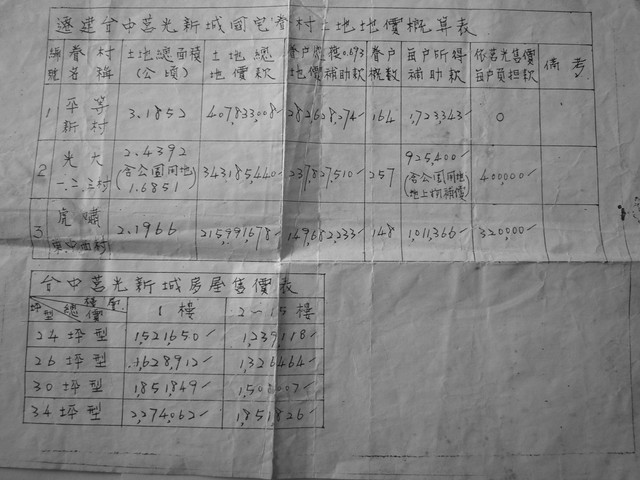 遷建台中莒光新城國宅眷村土地地價概算表
編號 眷村名稱 土地總面積(公頃) 土地總地價款 眷戶 地價補助款 眷戶概數 每戶所得補助款 依莒光售價每戶負担款 備考
1 平等新村 3.1852 407,833,008 282,628,274 164 1,723,343 0
2 光大一.二.三村 2.4392(含公園用地1.6851) 343,185,440 237,827,510 257 925,400(含公園用地地上物補償) 400,000
3 虎嘯 村 2.1966 215,991,678 149,682,233 148 1,011,366 320,000
台中莒光新城房屋售價表
坪型 總價 樓層 1樓 2~15樓
24坪型 1,521,650 1,239,118
26坪型 1,628,912 1,326,464
30坪型 1,851,849 1,508,007
34坪型 2,274,062 1,851,826